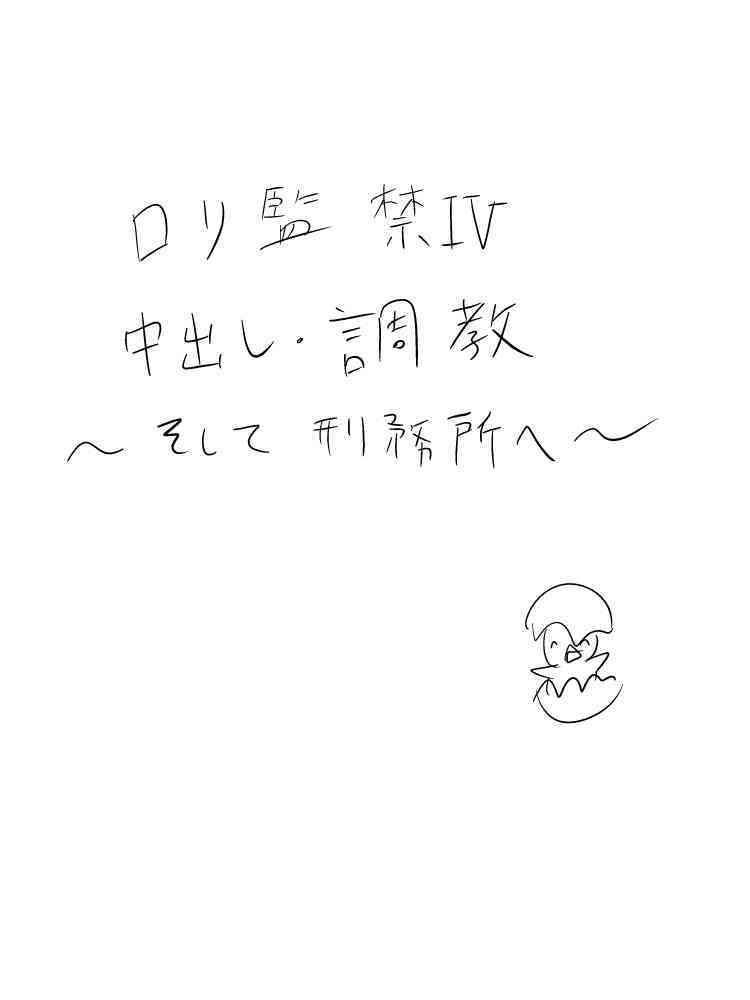 ロリ監禁IV
中出し・調教
～そして刑務所へ～